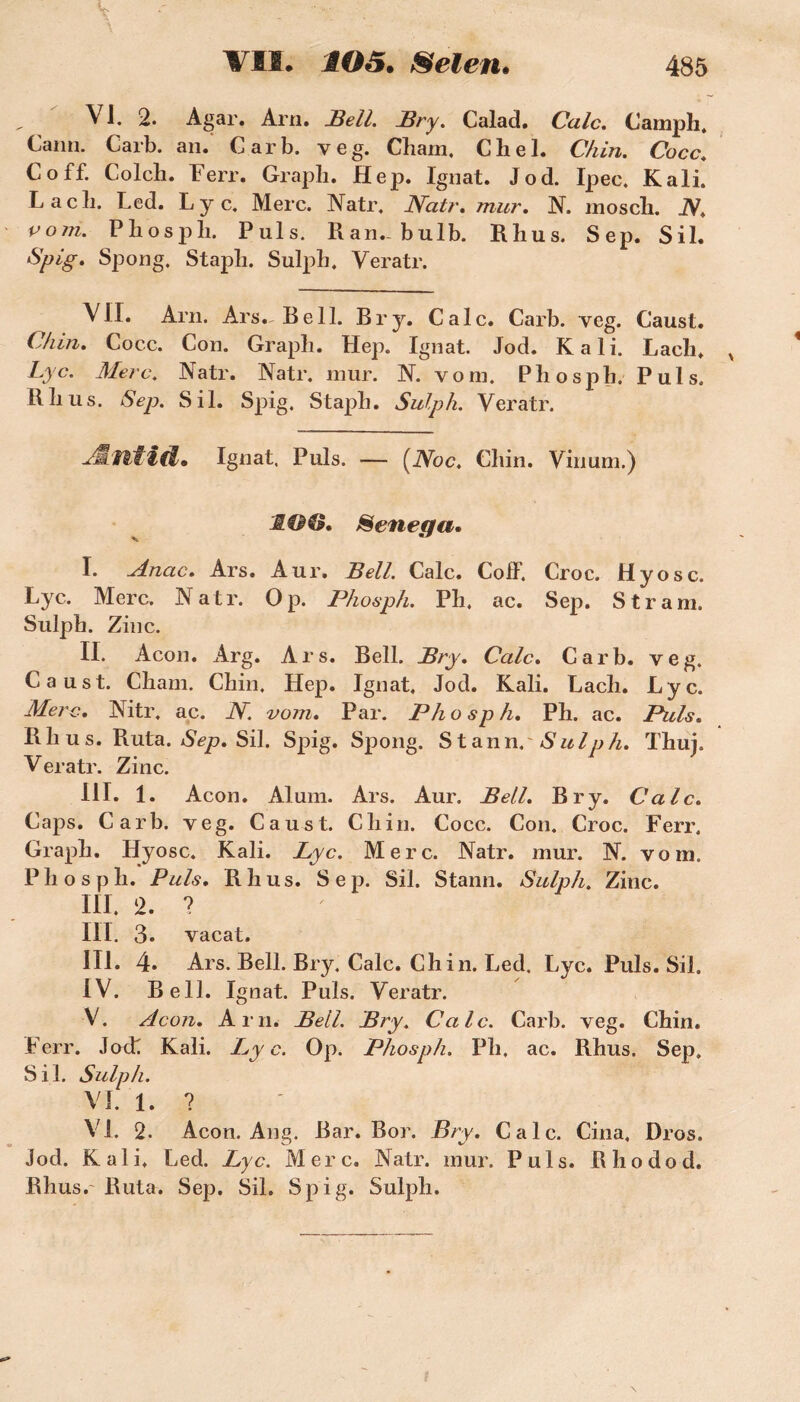 VII. 105. Selen. 485
VI. 2. Agar. Arn. Bell. Bry. Calad. Calc. Camph.
Cann. Carb. an. Carb. veg. Cham. Chel. Chin. Cocc.
Coff. Colch. Ferr. Graph. Hep. Ignat. Jod. Ipec. Kali.
Lach. Led. Lyc. Merc. Natr. Natr. mur. N. mosch. N.
vom. Phosph. Puls. Ran. bulb. Rhus. Sep. Sil.
Spig. Spong. Staph. Sulph. Veratr.
VII. Arn. Ars. Bell. Bry. Calc. Carb. veg. Caust.
Chin. Cocc. Con. Graph. Hep. Ignat. Jod. Kali. Lach.
Lyc. Merc. Natr. Natr. mur. N. vom. Phosph. Puls.
Rhus. Sep. Sil. Spig. Staph. Sulph. Veratr.
Antid. Ignat. Puls. — (Noc. Chin. Vinum.)
106. Senega.
I. Anac. Ars. Aur. Bell. Calc. Coff. Croc. Hyosc.
Lyc. Merc. Natr. Op. Phosph. Ph. ac. Sep. Stram.
Sulph. Zinc.
II. Acon. Arg. Ars. Bell. Bry. Calc. Carb. veg.
Caust. Cham. Chin. Hep. Ignat. Jod. Kali. Lach. Lyc.
Merc. Nitr. ac. N. vom. Par. Phosph. Ph. ac. Puls.
Rhus. Ruta. Sep. Sil. Spig. Spong. Stann. Sulph. Thuj.
Veratr. Zinc.
III. 1. Acon. Alum. Ars. Aur. Bell. Bry. Calc.
Caps. Carb. veg. Caust. Chin. Cocc. Con. Croc. Ferr.
Graph. Hyosc. Kali. Lyc. Merc. Natr. mur. N. vom.
Phosph. Puls. Rhus. Sep. Sil. Stann. Sulph. Zinc.
III. 2. ?
III. 3. vacat.
III. 4. Ars. Bell. Bry. Calc. Chin. Led. Lyc. Puls. Sil.
IV. Bell. Ignat. Puls. Veratr.
V. Acon. Arn. Bell. Bry. Calc. Carb. veg. Chin.
Ferr. Jod. Kali. Lyc. Op. Phosph. Ph. ac. Rhus. Sep.
Sil. Sulph.
VI. 1. ?
VI. 2. Acon. Ang. Bar. Bor. Bry. Calc. Cina. Dros.
Jod. Kali. Led. Lyc. Merc. Natr. mur. Puls. Rhodod.
Rhus. Ruta. Sep. Sil. Spig. Sulph.